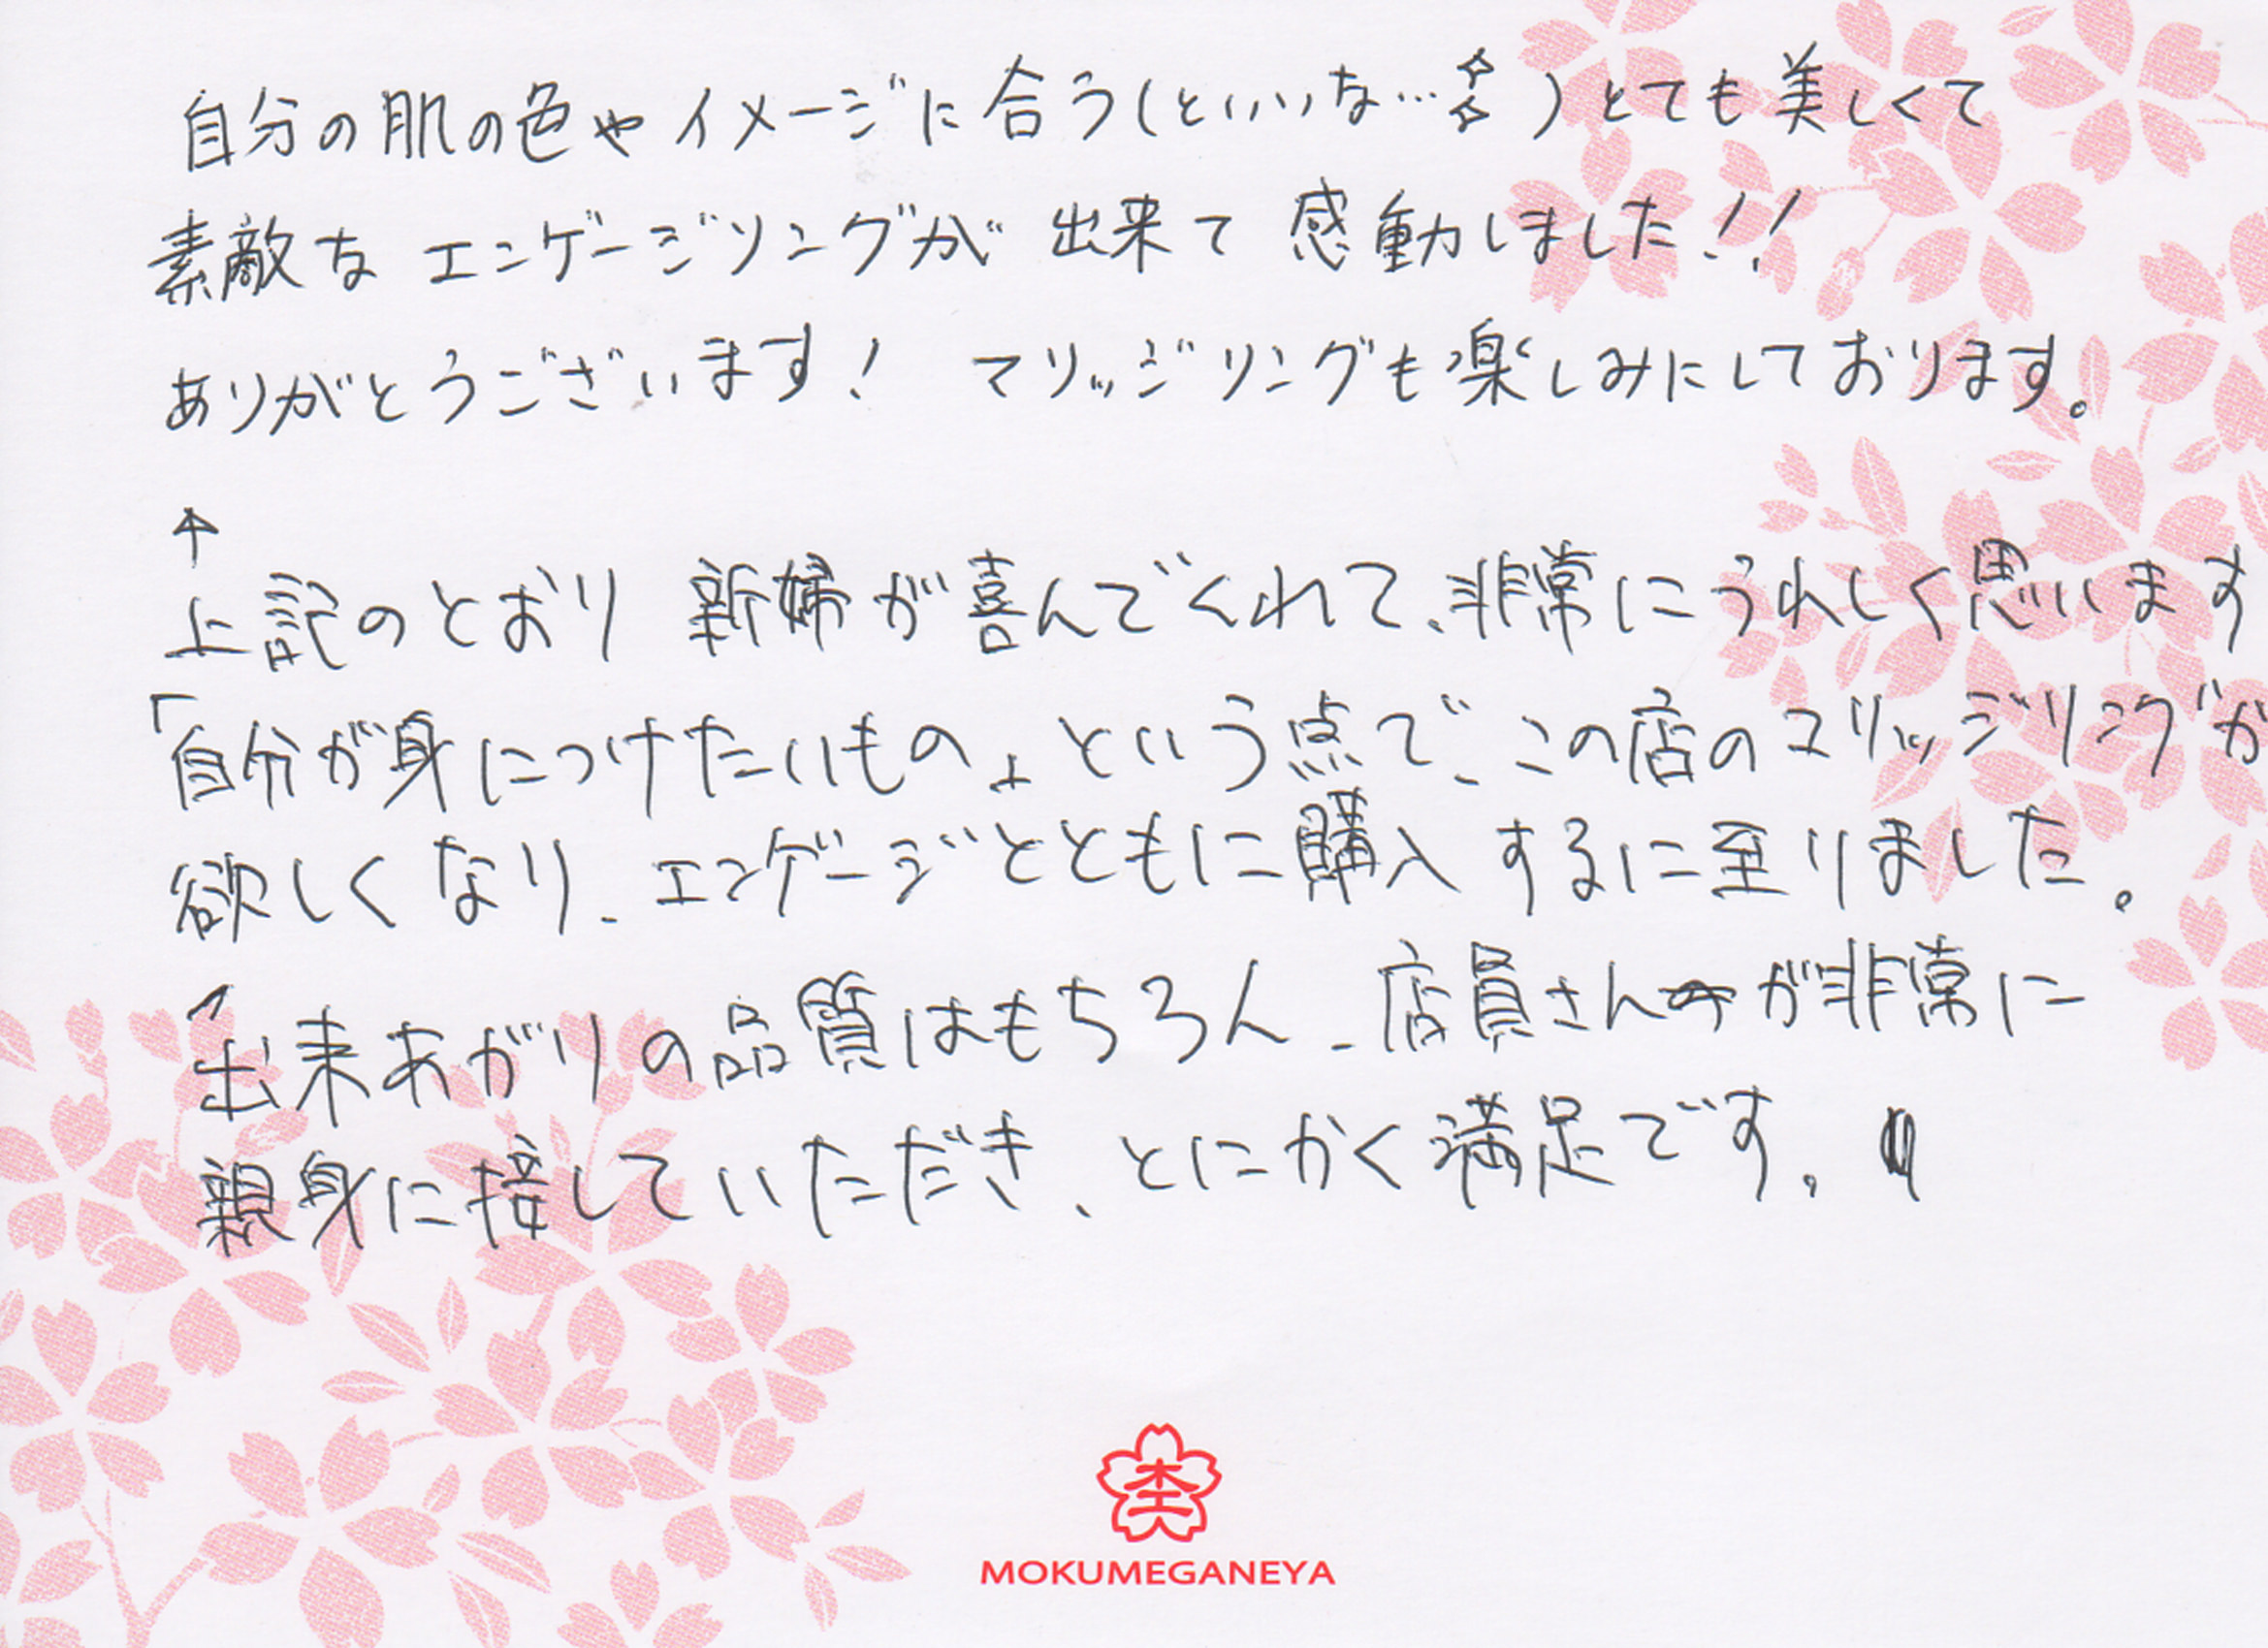 自分の肌の色やイメージに合う(といいな…✧)とても美しくて
素敵な エンゲージリングが 出来て 感動しました!!
ありがとうございます! マリッジリングも楽しみにしております。
↑
上記のとおり 新婦が喜んでくれて、非常にうれしく思います
「自分が身につけたいもの」という点で、この店のマリッジリングが
欲しくなり、エンゲージとともに購入するに至りました。
出来あがりの品質はもちろん、店員さんが非常に
親身に接していただき、とにかく満足です。
杢
MOKUMEGANEYA